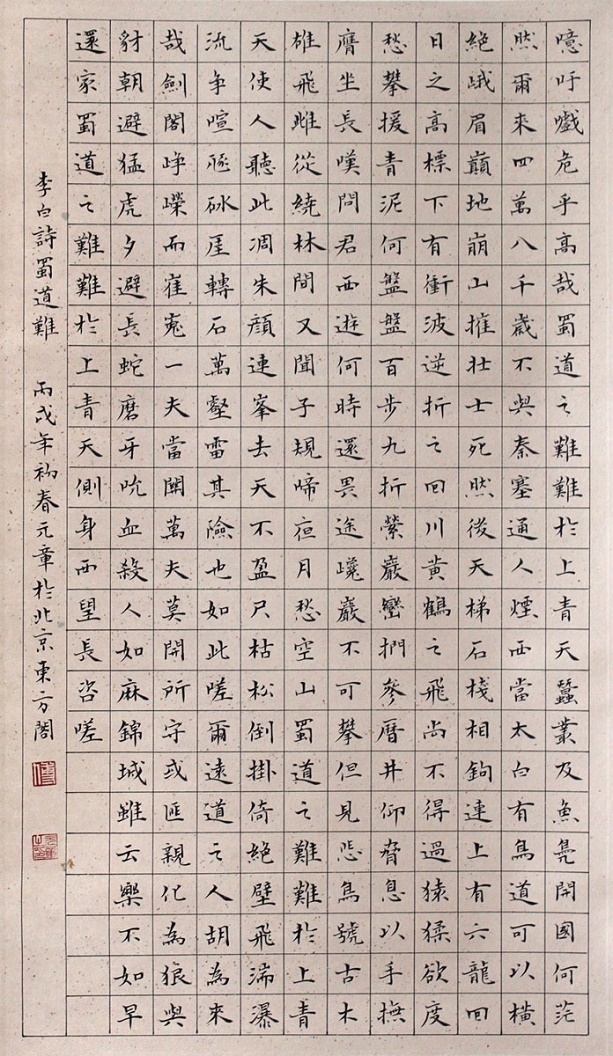 噫吁戲危乎高哉蜀道之難難於上青天蠶叢及魚鳧開國何茫
然爾來四萬八千歲不與秦塞通人煙西當太白有鳥道可以橫
絕峨眉巔地崩山摧壯士死然後天梯石棧相鉤連上有六龍回
日之高標下有衝波逆折之回川黃鶴之飛尚不得過猿猱欲度
愁攀援青泥何盤盤百步九折縈巖巒捫參曆井仰脅息以手撫
膺坐長嘆問君西遊何時還畏途巉巖不可攀但見悲鳥號古木
雄飛雌從繞林間又聞子規啼夜月愁空山蜀道之難難於上青
天使人聽此凋朱顏連峯去天不盈尺枯松倒掛倚絕壁飛湍瀑
流爭喧豗砯厓轉石萬壑雷其險也如此嗟爾遠道之人胡為來
哉劍閣崢嶸而崔嵬一夫當關萬夫莫開所守或匪親化為狼與
豺朝避猛虎夕避長蛇磨牙吮血殺人如麻錦城雖云樂不如早
還家蜀道之難難於上青天側身西望長咨嗟
李白詩蜀道難 丙戌年初春元章於北京東方閣